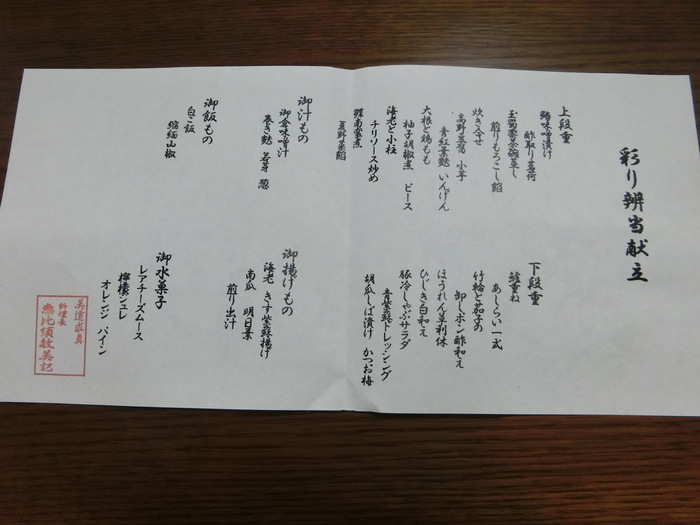 彩り辨当献立
上段重
鶏味噌漬け
酢取り茗荷
玉蜀黍茶碗蒸し
煎りもろこし餡
炊き合せ
高野豆腐 小芋
青紅葉麩 いんげん
大根と鶏もも
柚子胡椒煮 ピース
海老と小柱
チリソース炒め
鰈南蛮煮
夏野菜餡
下段重
鱧重ね
あしらい一式
竹輪と茄子の
卸しポン酢和え
ほうれん草利休
ひじき白和え
豚冷しゃぶサラダ
青紫蘇ドレッシング
胡瓜しば漬け かつお梅
御汁もの
御合味噌汁
巻き麩 若芽 葱
御飯もの
白ご飯
縮緬山椒
御揚げもの
海老 きす紫蘇揚げ
南瓜 明日葉
煎り出汁
御水菓子
レアチーズムース
檸檬ジュレ
オレンジ パイン
美道求真
料理長
恵比須敏英記